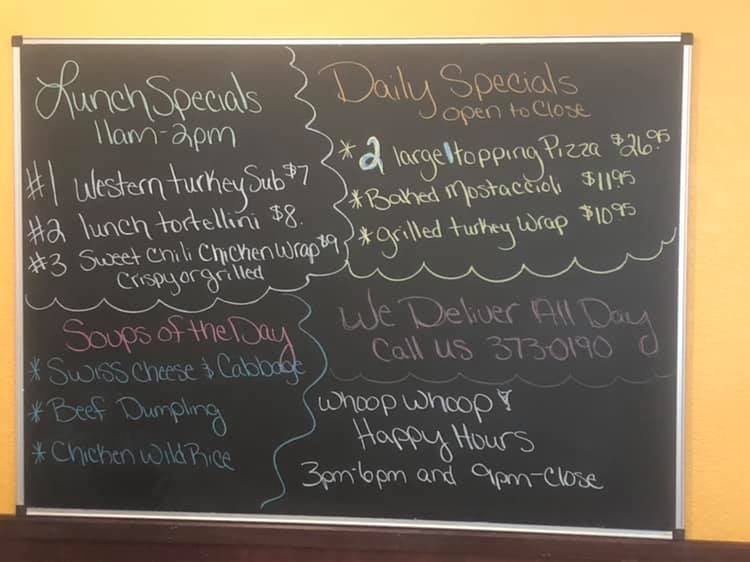 Lunch Specials
11am-2pm
#1 Western turkey Sub $7
#2 lunch tortellini $8.
#3 Sweet Chili Chicken Wrap $9
Crispy or grilled
Daily Specials
open to Close
* 2 large 1 topping Pizza $26.95
* Baked Mostaccioli $11.95
* grilled turkey Wrap $10.95
Soups of the Day
* Swiss Cheese & Cabbage
* Beef Dumpling
* Chicken Wild Rice
We Deliver All Day
Call us 373-0190
Whoop Whoop!
Happy Hours
3pm-6pm and 9pm-Close